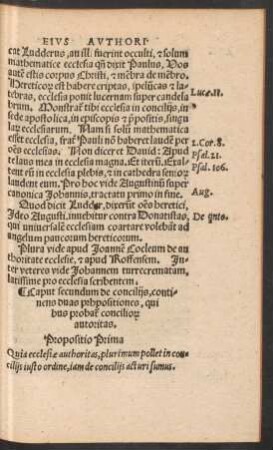 EIVS AVTHORI
cat Ludderus, an ill. fuerint occulti, & solum
mathematice ecclesia qñ dixit Paulus, Vos
autẽ estis corpus Christi, & mẽbra de mẽbro.
Hereticorum est habere criptas, spelũcas & la
tebras, ecclesia ponit lucernam super candela
brum. Monstrat tibi ecclesia in concilijs, in
sede apostolica, in episcopis & ꝓpositis, singu
larum ecclesiarum. Nam si solũ mathematica
esset ecclesia, frat̃ Pauli nõ haberet laudẽ per
oẽs ecclesias. Non diceret David: Apud
te laus mea in ecclesia magna. Et iterũ. Exal
tent eũ in ecclesia plebis, & in cathedra senior
laudent eum. Pro hoc vide Augustinũ super
canonica Johannis, tractatu primo in fine.
Quod dicit Ludder, dixerũt oẽs heretici,
Ideo Augusti. invehitur contra Donatistas,
qui universalẽ ecclesiam coartare volebãt ad
angelum paucorum hereticorum.
Plura vide apud Joannẽ Cocleum de au
thoritate ecclesie, & apud Roffensem. In
ter veteres vide Johannem turrecrematam,
latissime pro ecclesia scribentem.
Caput secundum de concilijs, conti
nens duas ꝓpositiones, qui
bus probat̃ concilior
autoritas.
Propositio Prima
Quia ecclesiæ authoritas, plurimum pollet in con
cilijs iusto ordine, iam de concilijs acturi sumus.
Lucæ.11.
2. Cor. 8.
Psal. 21.
Psal. 106.
Aug.